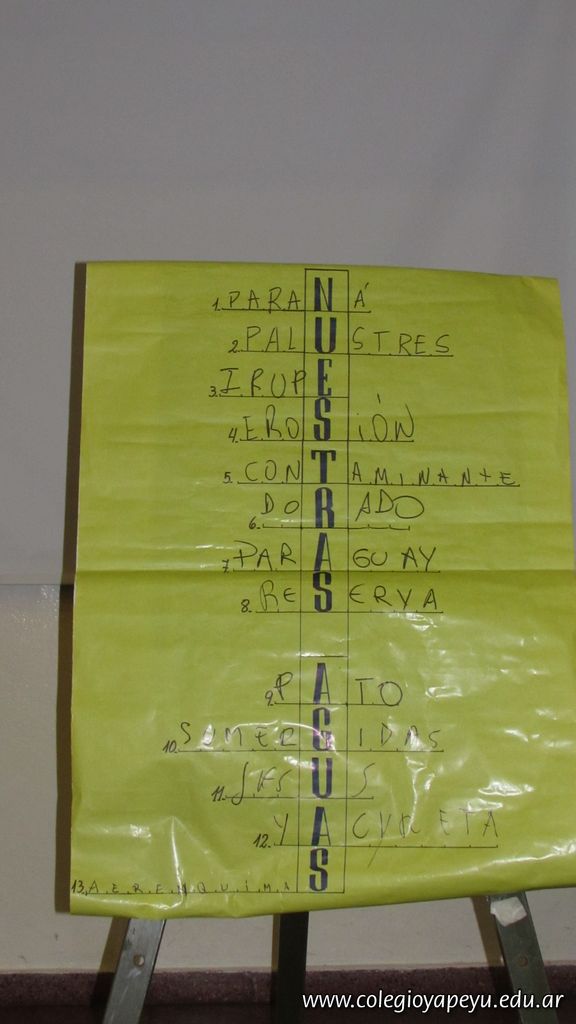 1. PARANÁ
2. PALUSTRES
3. IRUPE
4. EROSIÓN
5. CONTAMINANTE
6. DORADO
7. PARAGUAY
8. RESERVA
9. PATO
10. SUMERGIDAS
11. 
12. YACYRETA
13. AERENQUIMAS
www.colegioyapeyu.edu.ar